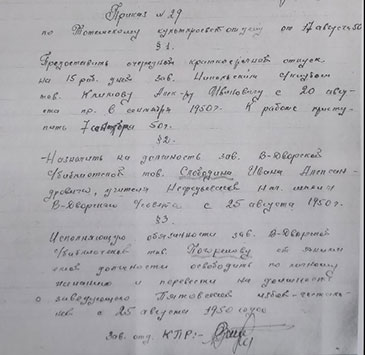 Приказ № 29
по Тотемскому культпросветотделу от 17 августа 50
§ 1.
Предоставить очередной краткосрочный отпуск
на 15 раб. дней зав. Никольским с/клубом
тов. Климову Алек-ру Ивановичу с 20 авгу-
ста по 6 сентября 1950г. К работе присту-
пить 7 сентября 50г.
§2.
-Назначить на должность зав. В-Дворской
с/библиотекой тов. Слободина Ивана Алексан-
дровича, учителя нач. школы
В-Дворского с 25 августа 1950г.
§3
Исполняющую обязанности зав. В-Дворской
с/библиотекой тов. от зани-
мой должности освободить по личному
желанию и перевести на должность
заведующего избой-читаль-
ней с 25 августа 1950 года
Зав. отд. КПР:-